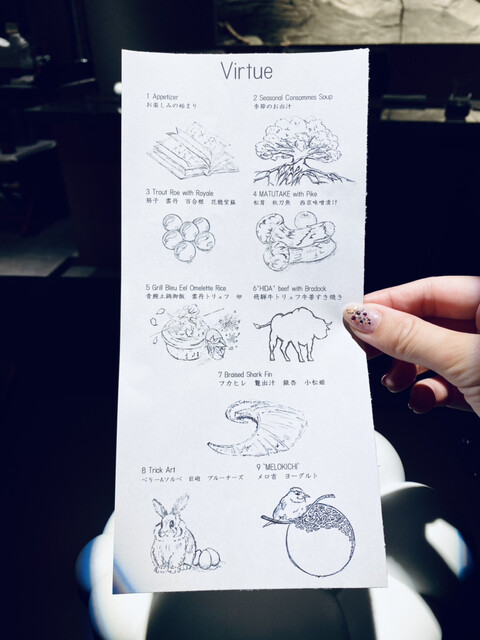 Virtue
1 Appetizer
お楽しみの始まり
2 Seasonal Consommes Soup
季節のお出汁
3 Trout Roe with Royale
筋子 雲丹 百合根 花穂紫蘇
4 MATUTAKE with Pike
松茸 秋刀魚 西京味噌漬け
5 Grill Bleu Eel Omelette Rice
青鰻土鍋御飯 雲丹トリュフ 卵
6 "HIDA" beef with Brodock
飛騨牛トリュフ牛蒡すき焼き
7 Braised Shark Fin
フカヒレ 鼈出汁 銀杏
8 Trick Art
ベリーAソルベ
9 "MELOKICHI"
メロ吉 ヨーグルト